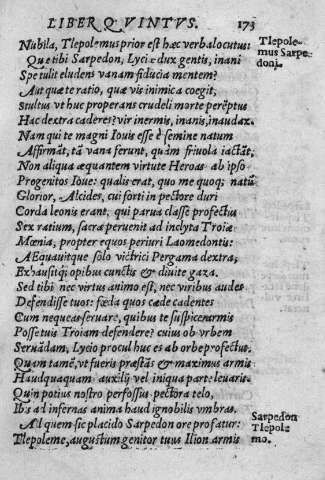 LIBER QVINTVS. 173
Nubila, Tlepolemus prior est hæc verba locutus:
Tlepole-
mus Sarpe-
doni.
Quæ tibi Sarpedon, Lyciæ dux gentis, inani
Spe tulit eludens vanam fiducia mentem?
Aut quæ te ratio, quæ vis inimica coegit,
Stultus vt huc properans crudeli morte perẽptus
Hac dextra caderes? vir inermis, inanis, inaudax.
Nam qui te magni Iouis esse è semine natum
Affirmãt, tã vana ferunt, quàm friuola iactãt;
Non aliqua æquantem virtute Heroas ab ipso
Progenitos Ioue: qualis erat, quo me quoq; natũ
Glorior, Alcides, cui forti in pectore duri
Corda leonis erant, qui parua classe profectus
Sex ratium, sacræ peruenit ad inclyta Troiæ
Mœnia, propter equos periuri Laomedontis:
AEquauitque solo victrici Pergama dextra,
Exhausitq; opibus cunctis & diuite gaza.
Sed tibi nec virtus animo est, nec viribus audes
Defendisse tuos: fœda quos cæde cadentes
Cum nequeas seruare, quibus te suspicer armis
Posse tuis Troiam defendere? cuius ob vrbem
Seruãdam, Lycio procul huc es ab orbe profectus.
Quam tamẽ, vt fueris præstãs & maximus armis
Haudquaquam auxilij vel iniqua parte leuaris.
Quin potius nostro perfossus pectora telo,
Ibis ad infernas anima haud ignobilis vmbras.
Ad quem sic placido Sarpedon ore profatur:
Sarpedon
Tlepole
mo.
Tlepoleme, augustum genitor tuus Ilion armis